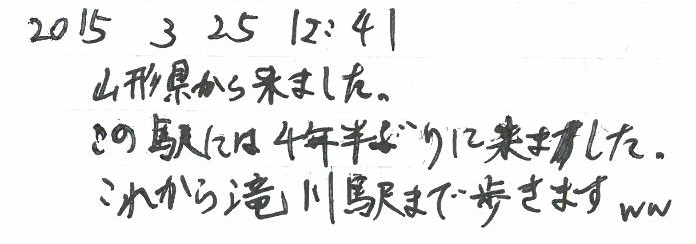 2015 3 25 12:41
山形県から来ました。
この駅には4年半ぶりに来ました。
これから滝川駅まで歩きます ww